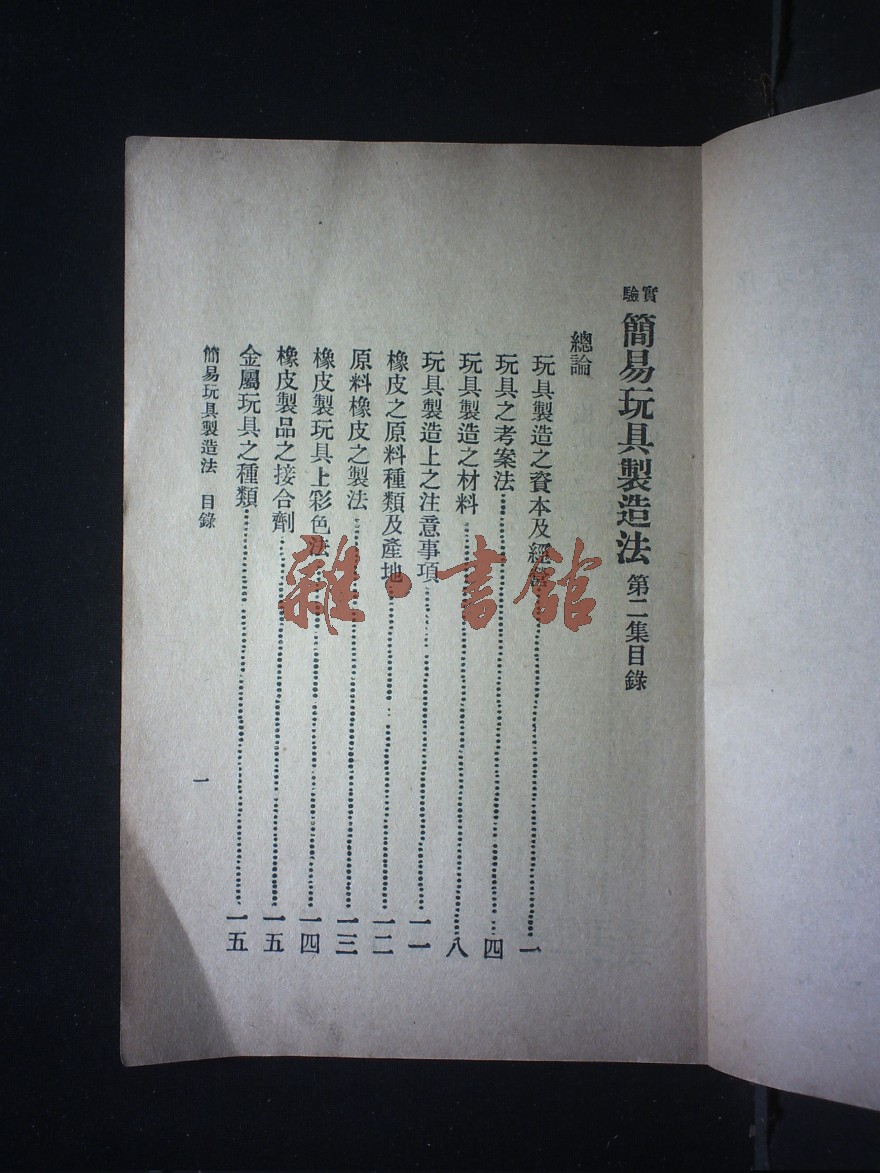 實驗 簡易玩具製造法 第二集目錄
總論
玩具製造之資本及經營……一
玩具之考案法……四
玩具製造之材料……八
玩具製造上之注意事項……一一
橡皮之原料種類及產地……一二
原料橡皮之製法……一三
橡皮製玩具上彩色法……一四
橡皮製品之接合劑……一五
金屬玩具之種類……一五
簡易玩具製造法 目錄
一
雜·書館